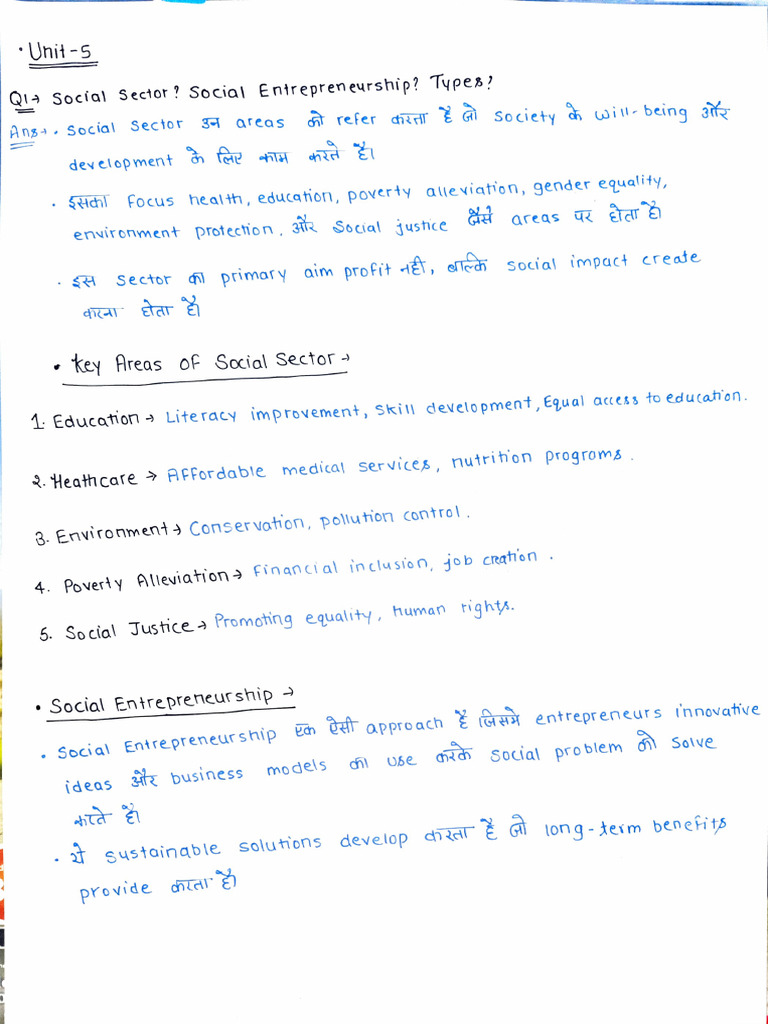 • Unit-5
Q1→ Social Sector? Social Entrepreneurship? Types?
Ans→ • Social Sector उन areas को refer करता है जो society के will-being और
development के लिए काम करते है।
• इसका focus health, education, poverty alleviation, gender equality,
environment protection, और Social justice जैसे areas पर होता है।
• इस sector का primary aim profit नहीं, बल्कि social impact create
करना होता है।
• Key Areas of Social Sector →
1. Education → Literacy improvement, Skill development, Equal access to education.
2. Heathcare → Affordable medical services, nutrition programs.
3. Environment → Conservation, pollution control.
4. Poverty Alleviation → Financial inclusion, job creation.
5. Social Justice → Promoting equality, Human rights.
• Social Entrepreneurship →
• Social Entrepreneurship एक ऐसी approach है जिसमे entrepreneurs innovative
ideas और business models का use करके social problem को solve
करते है।
• ये sustainable solutions develop करता है जो long-term benefits
provide करता है।